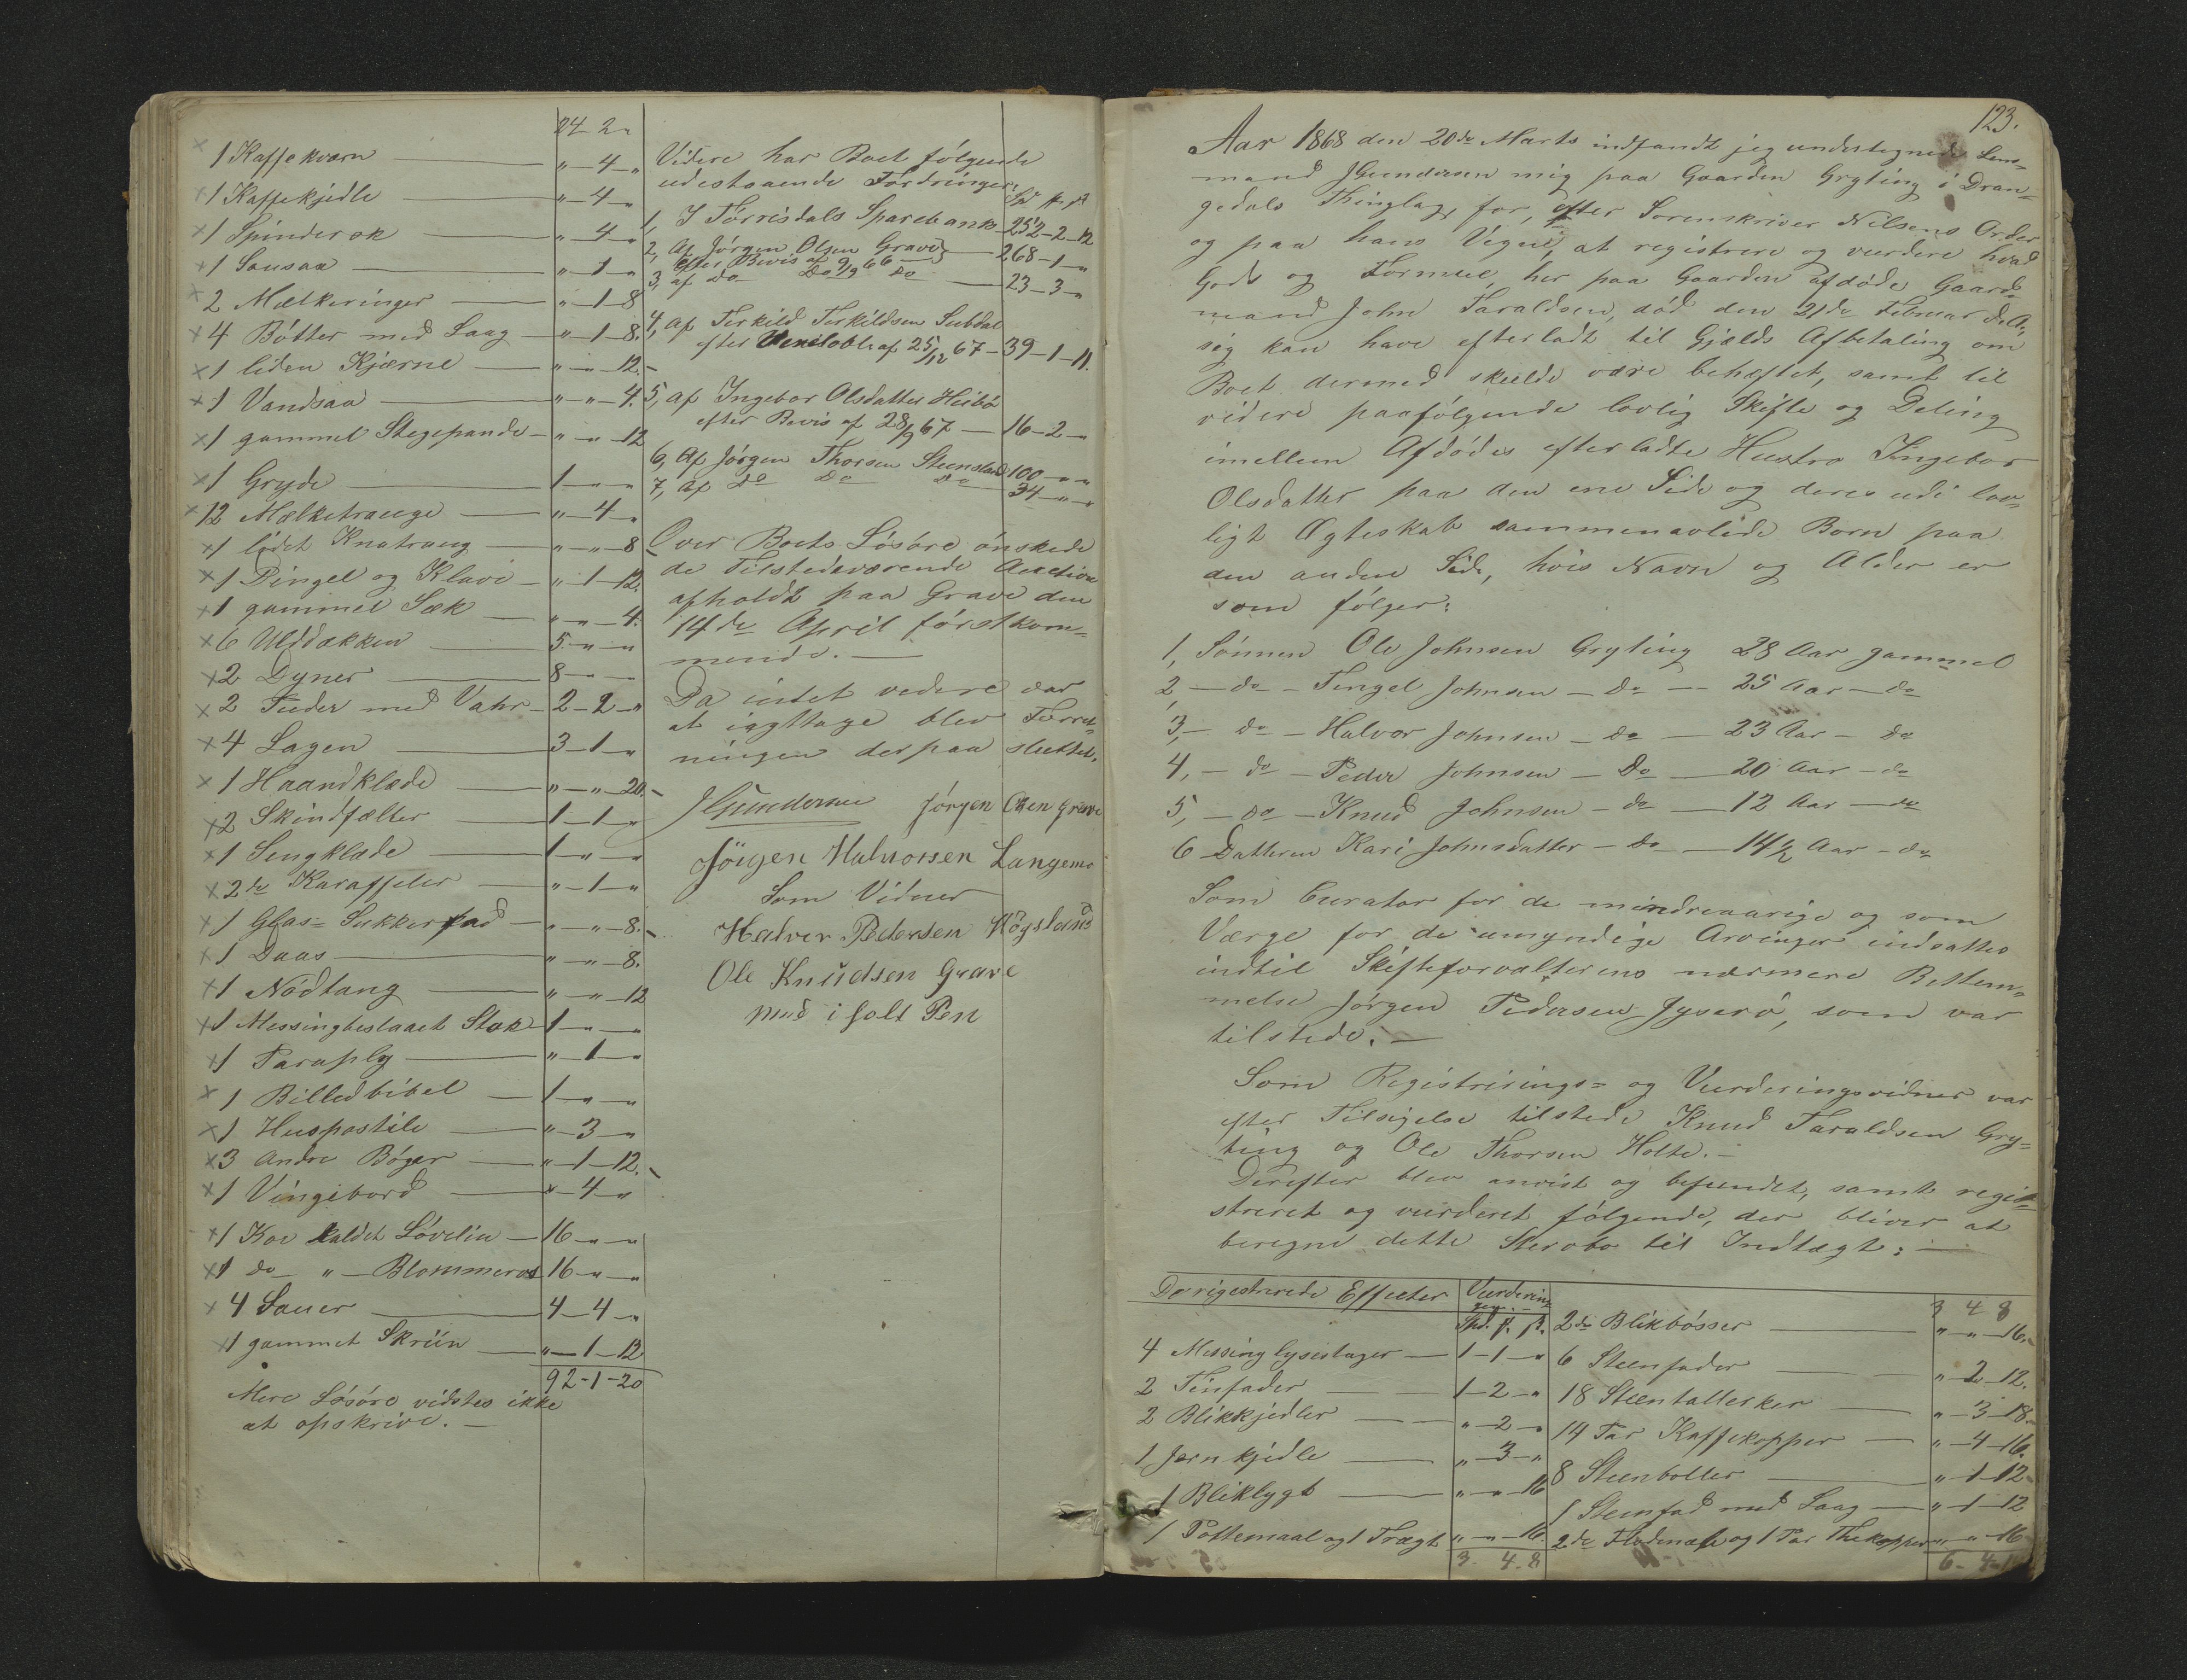 24-2-"
1 Kaffekværn — "-4-"
1 Kaffekjedle — "-4-"
1 Spinderok — "-4-"
1 Sausaa — "-1-"
2 Mælkeringer — "-1-8
4 Bøtter med Laag — "-1-8.
1 liden Kjærne — "-"-12.
1 Vandsaa — "-"-4.
1 gammel Stegepande — "-"-12
1 Gryde — 1-"-"
12 Mælketrauge — "-4-"
1 lidet Knatraug — "-"-8
1 Pingel og Klave — "-1-12.
1 gammel Sæk — "-"-4.
6 Ulddækken — 5-"-"
2 Dyner — 8-"-"
2 Puder med Vahr — 2-2-"
4 Lagen — 3-1-"
1 Haandklæde — "-"-20.
2 Skindfælter — 1-1-"
1 Sengklæde — 1-"-"
2de Karaffeler — "-1-"
1 Glas-Sukkerfad — "-"-8.
1 Daas — "-"-8.
1 Nødtang — "-"-12
1 Messingbeslaaet Stok 1-"-"
1 Paraply — "-1-"
1 Billedbibel — 1-"-"
1 Huspostile — "-3-"
3 Andre Bøger — "-1-12.
1 Vingebord — "-4-"
1 Koe kaldet Løvelin — 16-"-"
1 do " Blommeros 16-"-"
4 Sauer — 4-4-"
1 gammel Skriin — "-1-12
92-1-20
Mere Løsøre vidstes ikke
at opskrive. —
Videre har Boet følgende
udestaaende Fordringer:
1, I Tørrisdals Sparebank 252-2-12
2, Af Jørgen Olsen Grave
efter Bevis af 9/9 66 — 268-1-"
3, af Do Do 9/9 Do — 23-3-"
4, Af Terkild Terkildsen Subdal
efter Vexelobl. af 25/12 67 — 39-1-11.
5, af Ingebor Olsdatter Heibø
efter Bevis af 28/9 67 — 16-2-"
6, Af Jørgen Thorsen Steensland 100-"-"
7, Af Do Do Do 34-"-"
Over Boets Løsøre ønskede
de Tilstedeværende Auction
afholdt paa Grave den
14de April førstkom-
mende. —
Da intet videre var
at iagttage blev Forret-
ningen derpaa sluttet.
JGundersen Jörgen Olsen Grave
Jörgen Halvorsen Langemo
Som Vidner
Halvor Pedersen Högsland
Ole Knudsen Grave
med iholt Pen
123.
Aar 1868 den 20de Marts indfandt jeg undertegnede Lens-
mand JGundersen mig paa Gaarden Gryting i Dran-
gedals Thinglag, for, efter Sorenskriver Nilsens Order
og paa hans Vegne, at registrere og vurdere hvad
Gods og Formue, her paa Gaarden afdøde Gaard-
mand John Taraldsen, død den 21de Februar d.A.,
sig kan have efterladt til Gjælds Afbetaling om
Boet dermed skulde være behæftet, samt til
videre paafølgende lovlig Skifte og Deling
imellem Afdødes efterladte Hustro Ingebor
Olsdatter paa den ene Side og deres udi lov-
ligt Ægteskab sammenavlede Børn paa
den anden Side, hvis Navn og Alder er
som følger:
1, Sønnen Ole Johnsen Gryting 28 Aar gammel
2, — do — Tengel Johnsen — do — 25 Aar — do
3, — do — Halvor Johnsen — do — 23 Aar — do
4, — do — Peder Johnsen — Do — 20 Aar — do
5, — do — Knud Johnsen — do — 12 Aar — do
6 Datteren Kari Johnsdatter — do — 14 1/2 Aar — do
Som Curator for de mindreaarige og som
Værge for de umyndige Arvinger indsattes
indtil Skifteforvalterens nærmere Bestem-
melse Jørgen Pedersen, som var
tilstede. —
Som Registrerings- og Vurderingsvidner var
efter Tilsigelse tilstede Knud Taraldsen Gry-
ting og Ole Thorsen Holte. —
Derefter blev anvist og befundet, samt regi-
streret og vurderet følgende, der bliver at
beregne dette Stervbo til Indtægt: —
De registrerede Effecter Vurderin-
gen.
Spd. ß. ß.
4 Messing lysestager — 1-1-"
2 Tinfader — 1-2-"
2 Blikkjedler — "-2-"
1 Jernkjedle — "-3-"
1 Bliklygt — "-"-16
1 Pottemaal og 1 Tragt "-"-16.
3. 4. 8
3 4 8
2de Blikbøsser — "-"-16.
6 Steenfader — "-2-12.
18 Steentallerker — "-3-18.
14 Par Kaffekopper — "-4-16.
8 Steenboller — "-1-12
1 Steenfad med Laag — "-1-12
2de Flødenæbe og 1 Par Thekopper "-"-16
6-4-